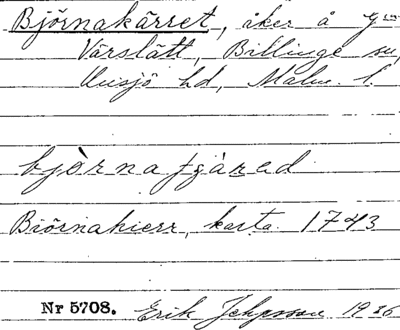 Björnakärret, åker å
Värslätt, Billinge sn,
Onsjö hd, Malm. l.
bjòrnafjäred
Biörnakierr, karta 1743
Nr 5708. Erik Jeppsson 1936